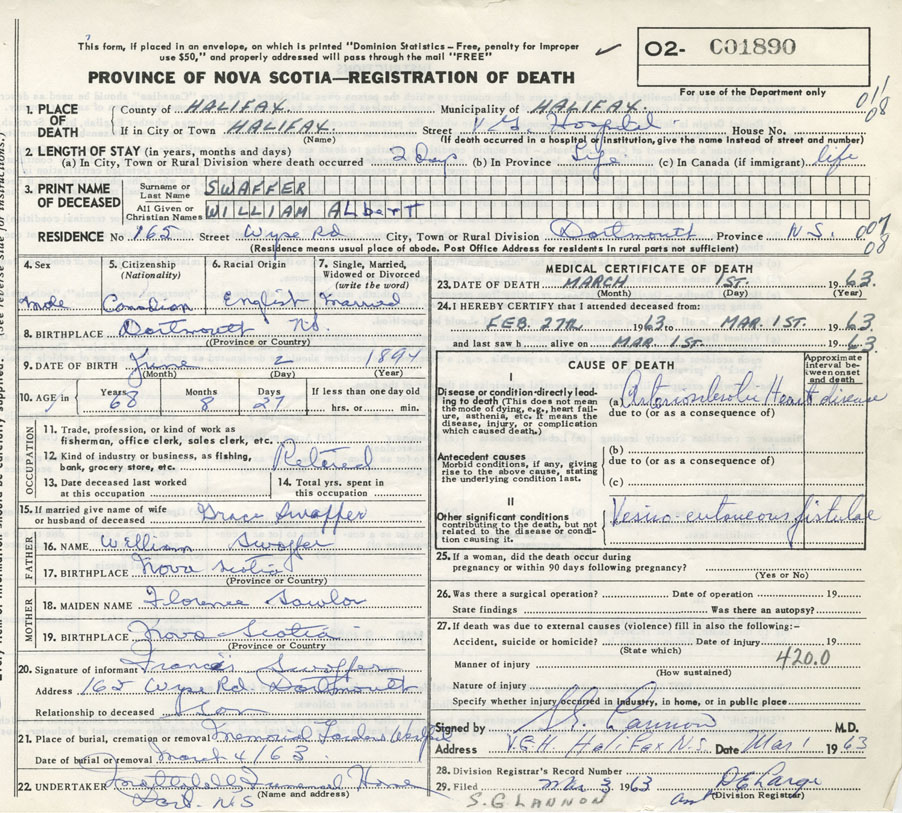 This form, if placed in an envelope, on which is printed "Dominion Statistics – Free, penalty for improper
use $50," and properly addressed will pass through the mail "FREE"
O2- C01890
PROVINCE OF NOVA SCOTIA—REGISTRATION OF DEATH
For use of the Department only
1. PLACE OF DEATH
County of HALIFAX. Municipality of HALIFAX.
If in City or Town HALIFAX. Street V.G. Hospital House No.
(Name) (If death occurred in a hospital or institution, give the name instead of street and number)
2. LENGTH OF STAY (in years, months and days)
(a) In City, Town or Rural Division where death occurred 2 Days (b) In Province Life (c) In Canada (if immigrant) life
3. PRINT NAME OF DECEASED
Surname or Last Name SWAFFER
All Given or Christian Names WILLIAM AlbeRT
RESIDENCE No 165 Street Wyse Rd City, Town or Rural Division Dartmouth Province N.S.
(Residence means usual place of abode. Post Office Address for residents in rural parts not sufficient)
4. Sex 5. Citizenship (Nationality) 6. Racial Origin 7. Single, Married, Widowed or Divorced (write the word)
male Canadian English Married
8. BIRTHPLACE Dartmouth NS.
(Province or Country)
9. DATE OF BIRTH June 2 1894
(Month) (Day) (Year)
10. AGE in Years 68 Months 8 Days 27 If less than one day old
hrs. or min.
OCCUPATION
11. Trade, profession, or kind of work as
fisherman, office clerk, sales clerk, etc.
12. Kind of industry or business, as fishing,
bank, grocery store, etc. Retired
13. Date deceased last worked
at this occupation
14. Total yrs. spent in
this occupation
15. If married give name of wife
or husband of deceased Grace Swaffer
FATHER
16. NAME William Swaffer
17. BIRTHPLACE Nova Scotia
(Province or Country)
MOTHER
18. MAIDEN NAME Florence Lawlor
19. BIRTHPLACE Nova Scotia
(Province or Country)
20. Signature of informant Francis Swaffer
Address 165 Wyse Rd. Dartmouth
Relationship to deceased Son
21. Place of burial, cremation or removal Memorial Gardens
Date of burial or removal March 4/63
22. UNDERTAKER Funeral Home
Dart. N.S (Name and address)
MEDICAL CERTIFICATE OF DEATH
23. DATE OF DEATH MARCH 1ST. 1963.
(Month) (Day) (Year)
24. I HEREBY CERTIFY that I attended deceased from:
FEB. 27th 1963 to MAR. 1ST. 1963.
and last saw h alive on MAR. 1ST. 1963.
CAUSE OF DEATH
Approximate interval between onset and death
I
Disease or condition directly leading
to death (This does not mean
the mode of dying, e.g., heart failure,
asthenia, etc. It means the
disease, injury, or complication
which caused death.)
(a) Arteriosclerotic Heart disease
due to (or as a consequence of)
Antecedent causes
Morbid conditions, if any, giving
rise to the above cause, stating
the underlying condition last.
(b)
due to (or as a consequence of)
(c)
II
Other significant conditions
contributing to the death, but not
related to the disease or condition
causing it.
Vesico-cutaneous fistulae
25. If a woman, did the death occur during
pregnancy or within 90 days following pregnancy?
(Yes or No)
26. Was there a surgical operation? Date of operation 19
State findings Was there an autopsy?
27. If death was due to external causes (violence) fill in also the following:-
Accident, suicide or homicide? Date of injury 19
(State which)
Manner of injury 420.0
(How sustained)
Nature of injury
Specify whether injury occurred in industry, in home, or in public place
Signed by S.G. Lannon M.D.
Address V.G.H. Halifax N.S. Date Mar 1 1963
28. Division Registrar's Record Number
29. Filed Mar 3 1963
(Division Registrar)
S.G LANNON